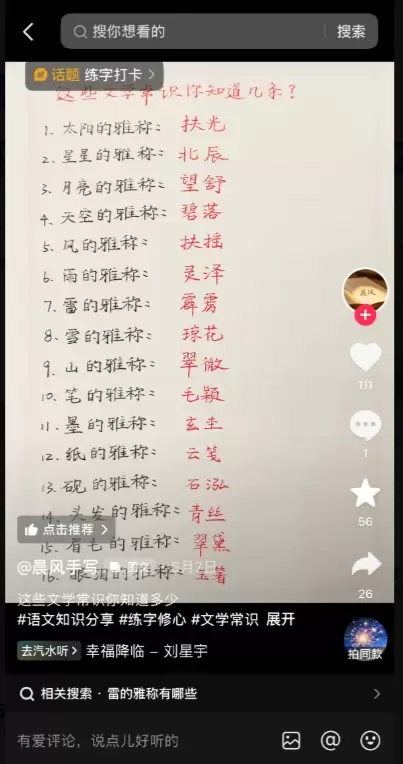 搜你想看的 搜索
话题 练字打卡
这些文学常识你知道几条?
1、太阳的雅称: 扶光
2、星星的雅称: 北辰
3、月亮的雅称: 望舒
4、天空的雅称: 碧落
5、风的雅称: 扶摇
6、雨的雅称: 灵泽
7、雷的雅称: 霹雳
8、雪的雅称: 琼花
9、山的雅称: 翠微
10、笔的雅称: 毛颖
11、墨的雅称: 玄圭
12、纸的雅称: 云笺
13、砚的雅称: 石泓
14、头发的雅称: 青丝
点击推荐
15、眉毛的雅称: 翠黛
16、眼泪的雅称: 玉箸
@晨风手写
111
1
56
26
这些文学常识你知道多少
#语文知识分享 #练字修心 #文学常识 展开
去汽水听 幸福降临 – 刘星宇
拍同款
相关搜索 · 雷的雅称有哪些
有爱评论，说点儿好听的